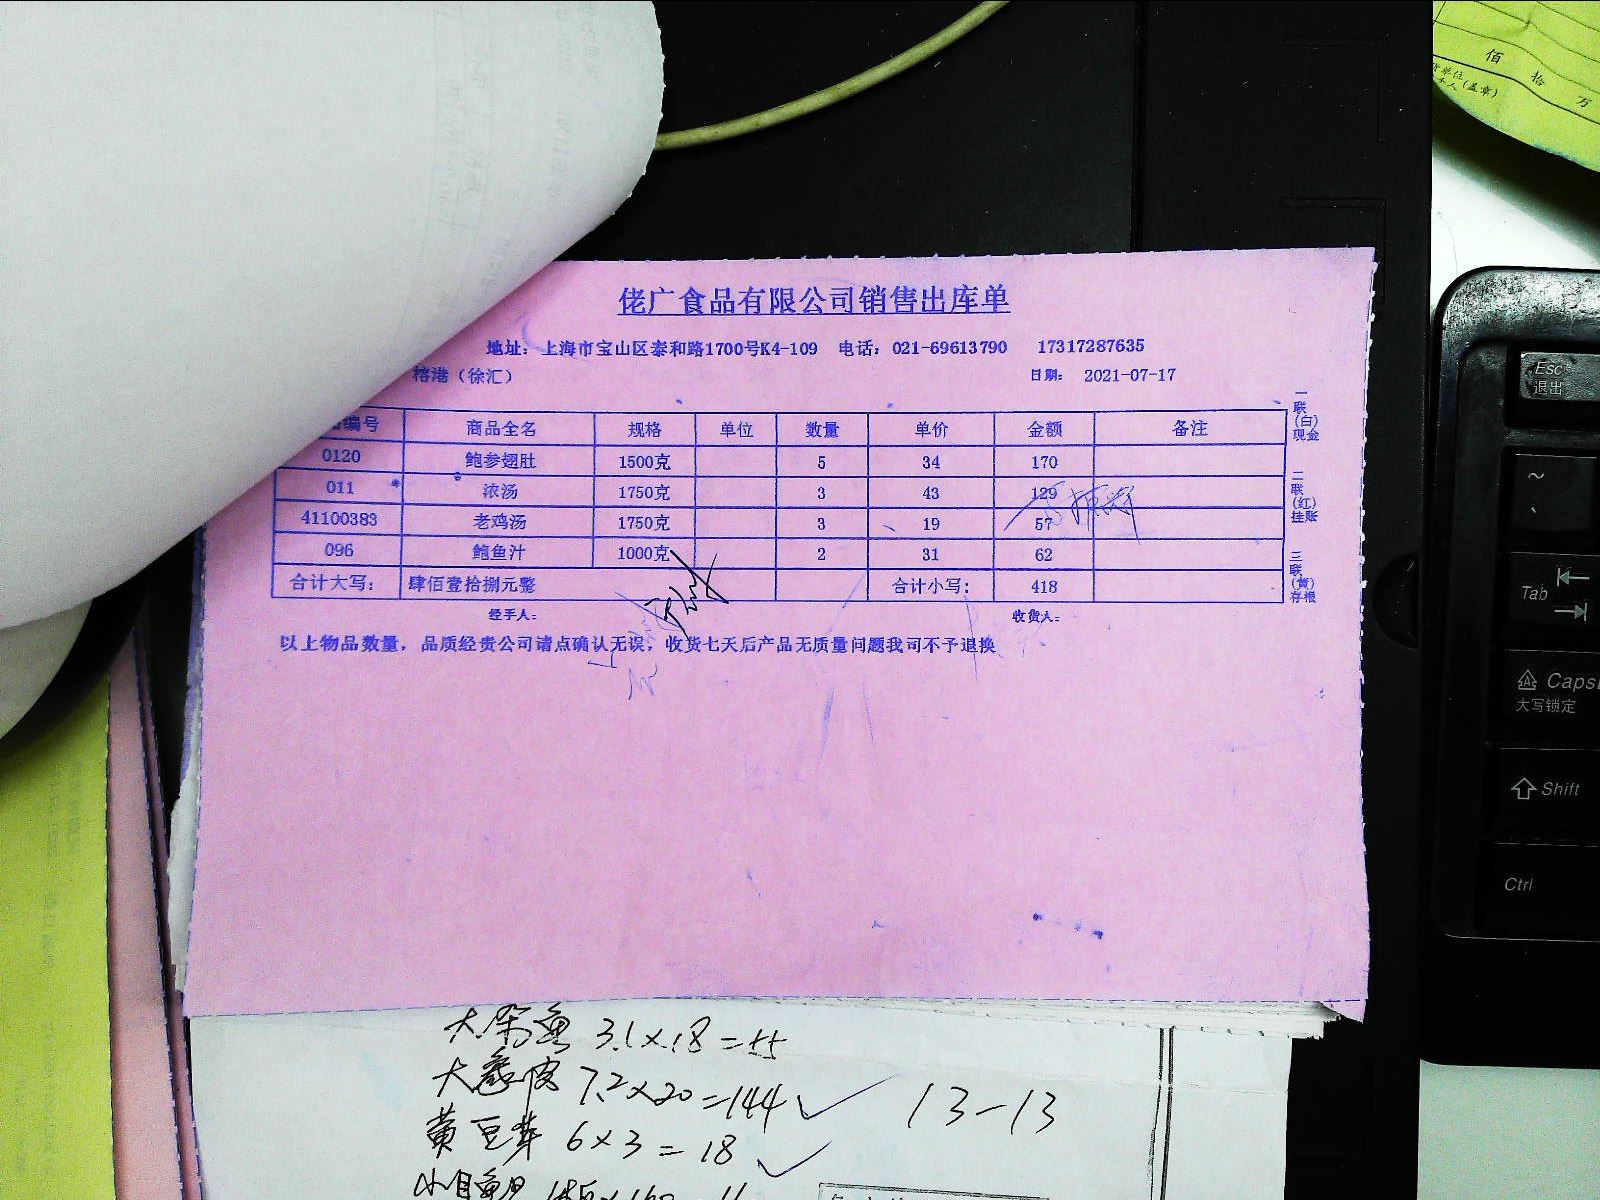 佬广食品有限公司销售出库单
地址：上海市宝山区泰和路1700号K4-109 电话：021-69613790 17317287635
榕港（徐汇） 日期： 2021-07-17
编号 商品全名 规格 单位 数量 单价 金额 备注
0120 鲍参翅肚 1500克 5 34 170
011 浓汤 1750克 3 43 129
41100383 老鸡汤 1750克 3 19 57
096 鲍鱼汁 1000克 2 31 62
合计大写： 肆佰壹拾捌元整 合计小写： 418
经手人： 收货人：
以上物品数量，品质经贵公司请点确认无误，收货七天后产品无质量问题我司不予退换
一联（白）现金
二联（红）挂账
三联（黄）存根
3.1×18=55
7.2×20=144
13-13
黄豆芽 6×3=18
佰 拾 万
（盖章）
Esc
退出
~
Tab
Caps
大写锁定
Shift
Ctrl